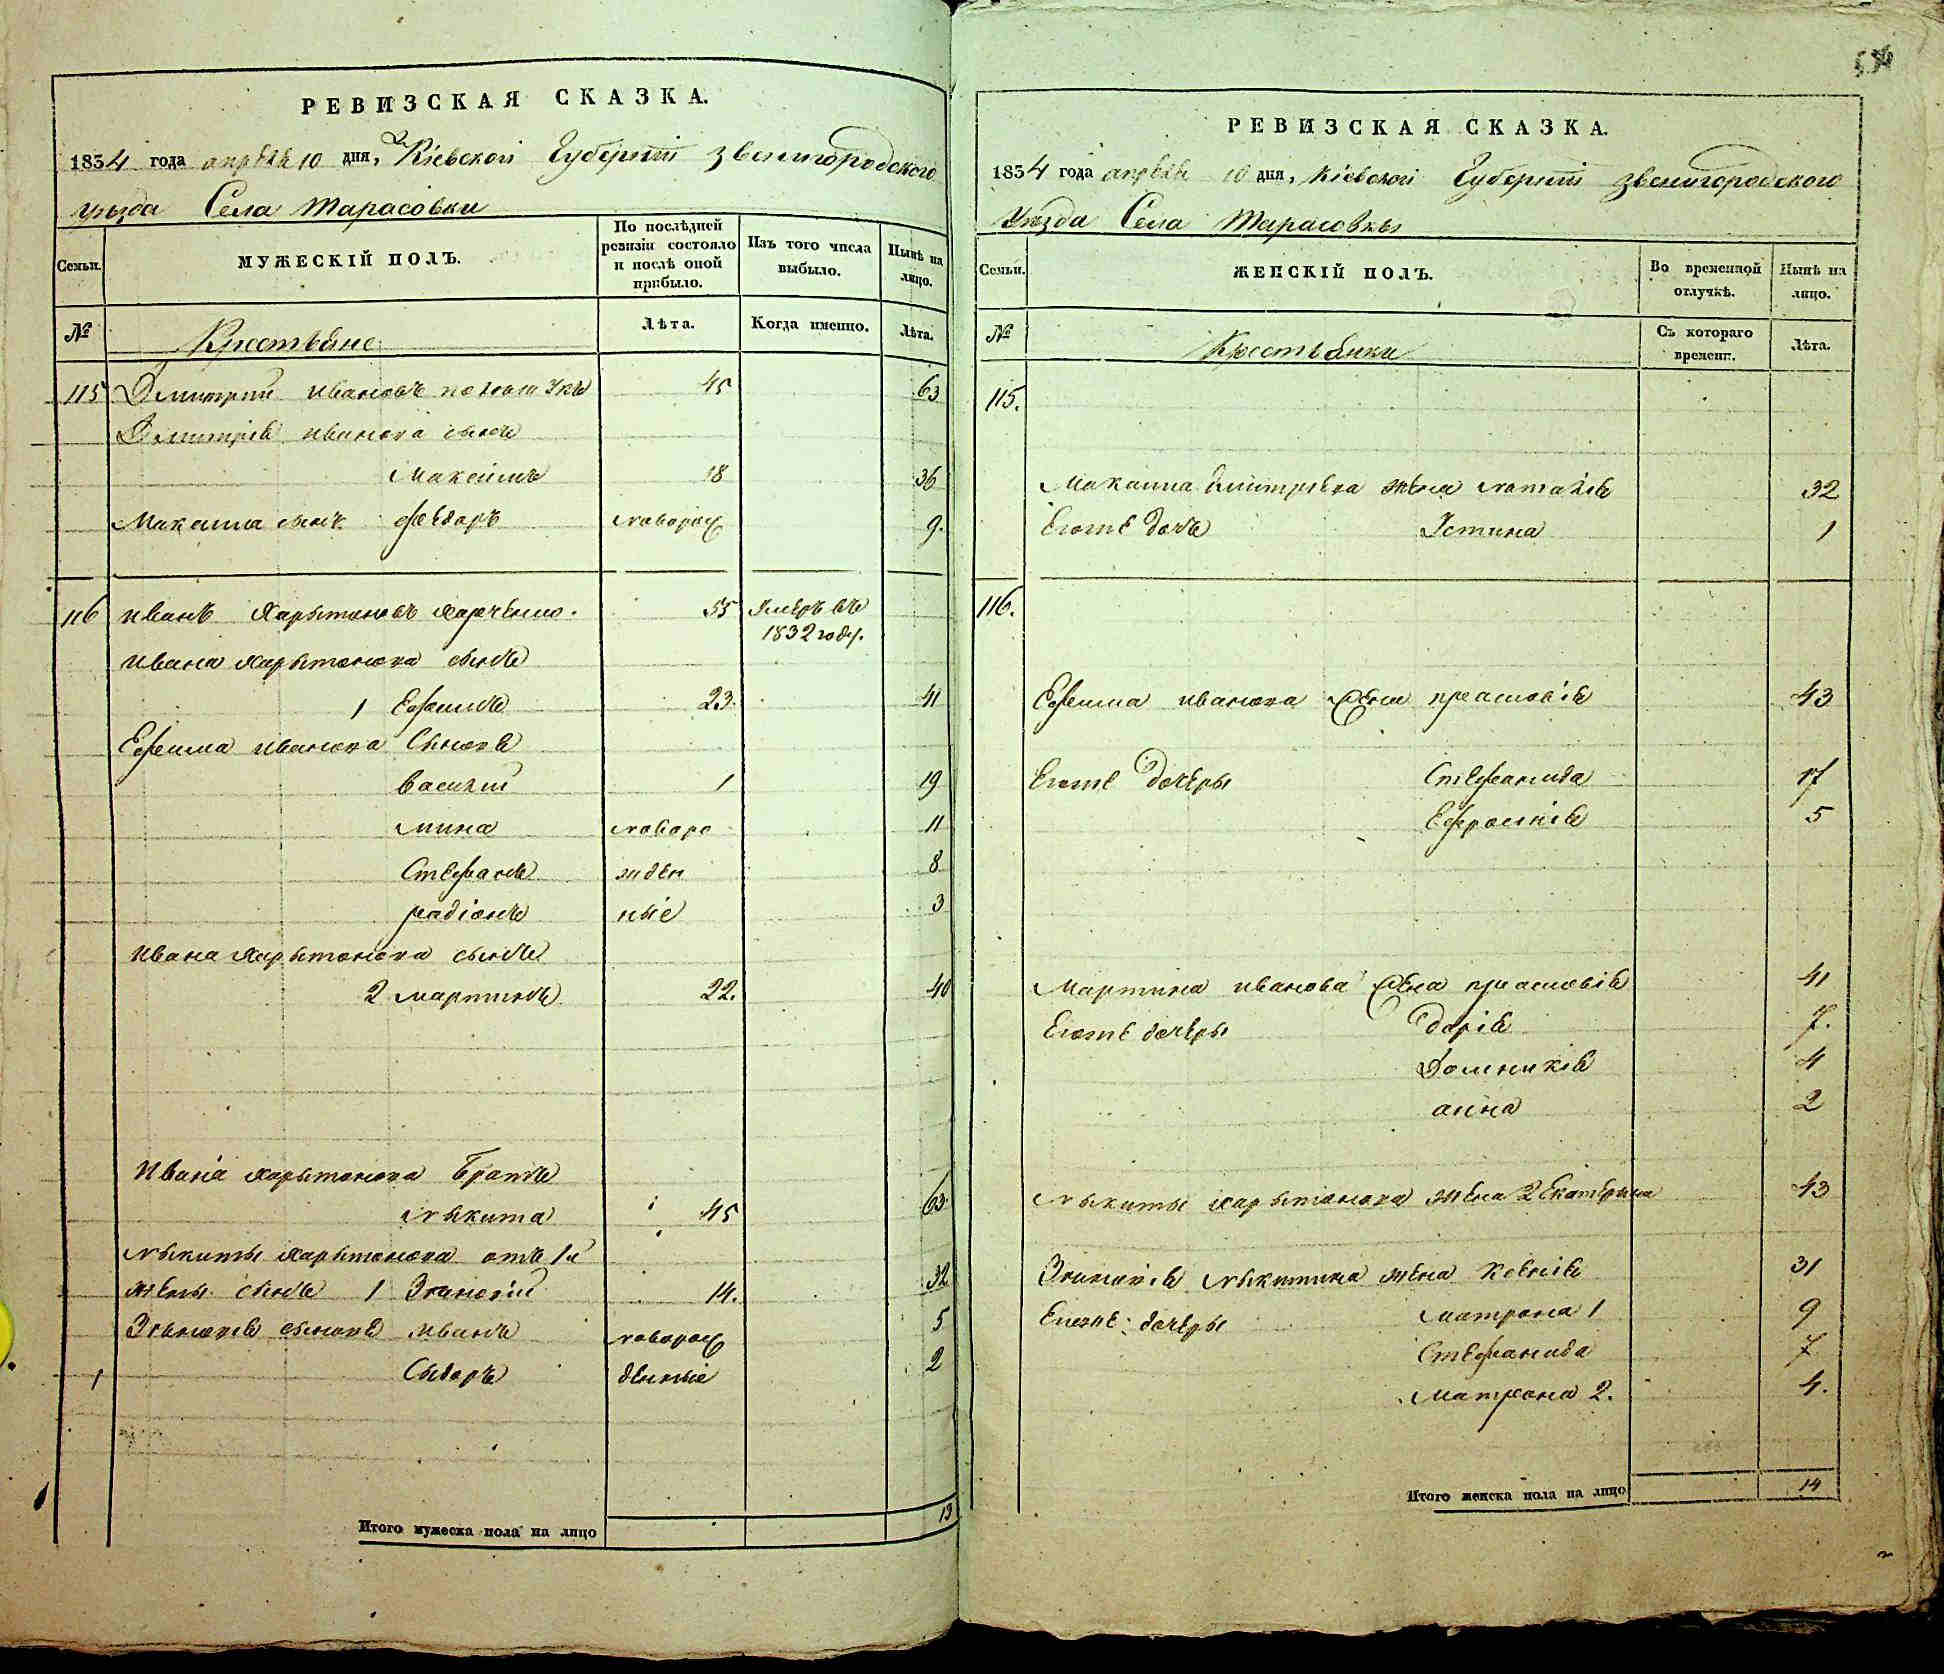 РЕВИЗСКАЯ СКАЗКА.
1834 года апреля 10 дня, Кіевской Губерніи Звенигородского
уезда Села Тарасовки
Семьи.
МУЖЕСКІЙ ПОЛЪ.
По послѣдней ревизіи состояло и послѣ оной прибыло.
Изъ того числа выбыло.
Нынѣ на лицо.
№
Крестьяне
Лѣта.
Когда именно.
Лѣта.
115 Дмитрий Ивановъ 45 63
Дмитрія Иванова сынъ
Максимъ 18 36
Максима сынъ Федоръ новорож 9.
116 Иванъ Харытоновъ Харченко. 55 Умеръ въ
1832 году.
Ивана Харытонова сынъ
1 Ефимъ 23. 41
Ефима Иванова Сыновя
Василий 1 19
Мина новоро 11
Стефанъ жден 8
Радіонъ ныіе 3
Ивана Харытонова сынъ
2 Мартинъ 22. 40
Ивана Харытонова Братъ
Ныкита 45 63
Ныкиты Харытонова отъ 1й
жены сынъ 1 Зиновій 14. 32
Зиновія сыновя Иванъ новорож 5
1 Сыдоръ денные 2
Итого мужеска пола на лицо 13
554
РЕВИЗСКАЯ СКАЗКА.
1834 года апреля 10 дня, Кіевской Губерніи Звенигородского
Уезда Села Тарасовки
Семьи.
ЖЕНСКІЙ ПОЛЪ.
Во временной отлучкѣ.
Нынѣ на лицо.
№
Крестьянки
Съ котораго времени.
Лѣта.
115.
Максима Дмитриева жена Наталія 32
Егоже дочь Істина 1
116.
Ефима Иванова Жена Праsковія 43
Егоже дочеры Стефанида 17
Ефросинія 5
Мартина Иванова Жена Прасковія 41
Егоже дочеры Дарія 7.
Домникія 4
анна 2
Ныкиты Харытонова жена 2 Екатерина 43
Зиновія Ныкитина жена Ксенія 31
Егоже дочеры Матрона 1 9
Стефанида 7
Матрона 2. 4.
Итого женска пола на лицо 14